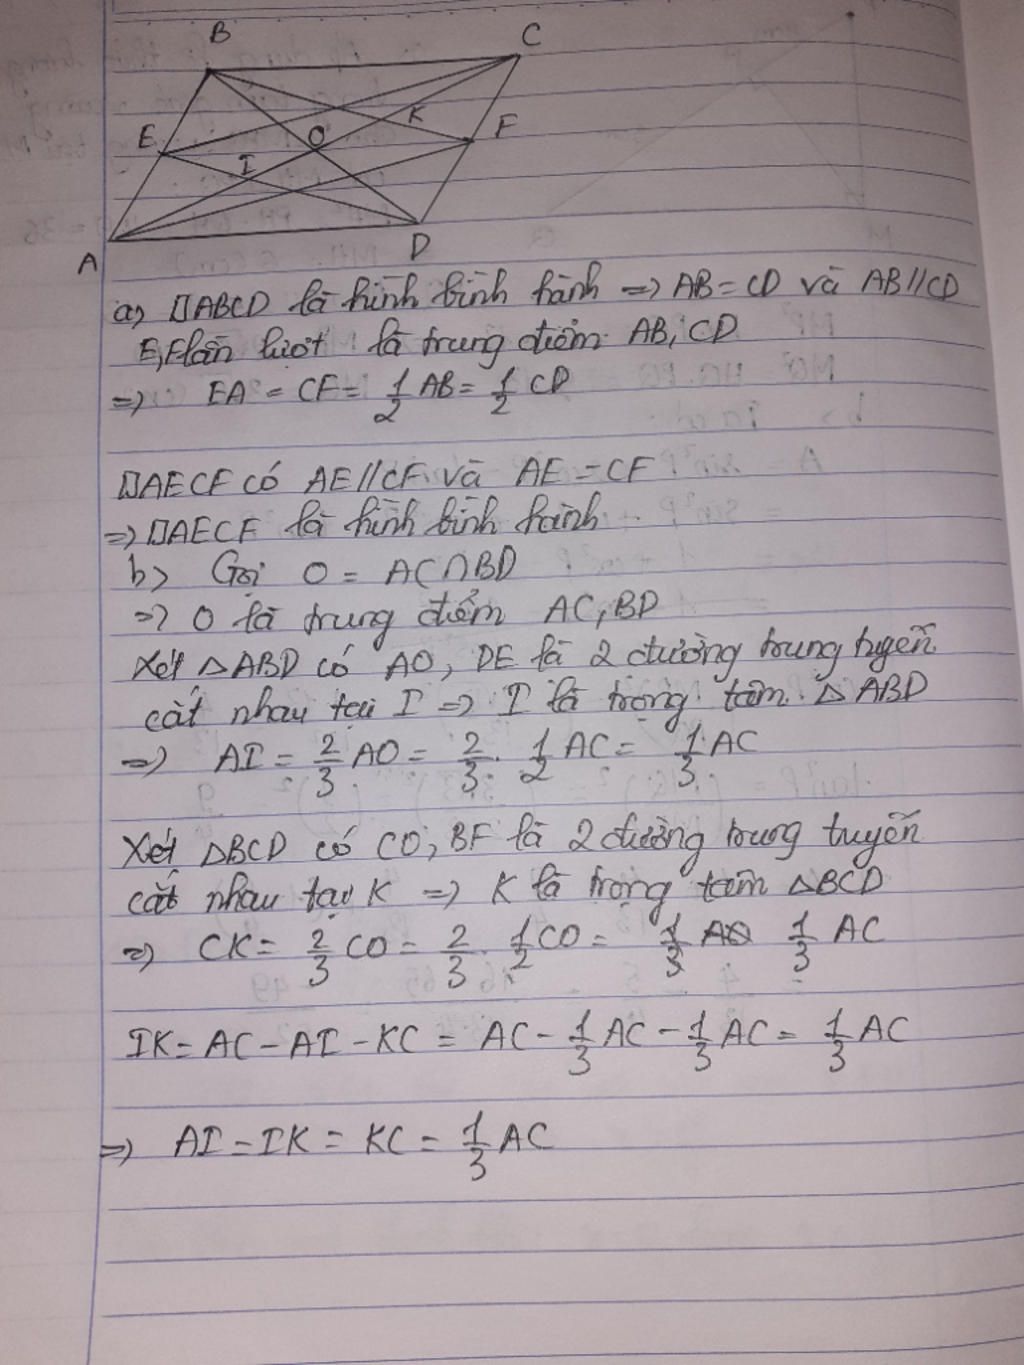 B
C
K
E
O
F
I
A
D
a) □ABCD là hình bình hành => AB = CD và AB//CD
E,F lần lượt là trung điểm AB, CD
=> EA = CF = 1/2 AB = 1/2 CD
□AECF có AE//CF và AE = CF
=> □AECF là hình bình hành
b> Gọi O = AC∩BD
=> O là trung điểm AC, BD
Xét △ABD có AO, DE là 2 đường trung tuyến
cắt nhau tại I => I là trọng tâm △ABD
=> AI = 2/3 AO = 2/3 . 1/2 AC = 1/3 AC
Xét △BCD có CO, BF là 2 đường trung tuyến
cắt nhau tại K => K là trọng tâm △BCD
=> CK = 2/3 CO = 2/3 . 1/2 CO = 1/3 AC
IK = AC - AI - KC = AC - 1/3 AC - 1/3 AC = 1/3 AC
=> AI = IK = KC = 1/3 AC